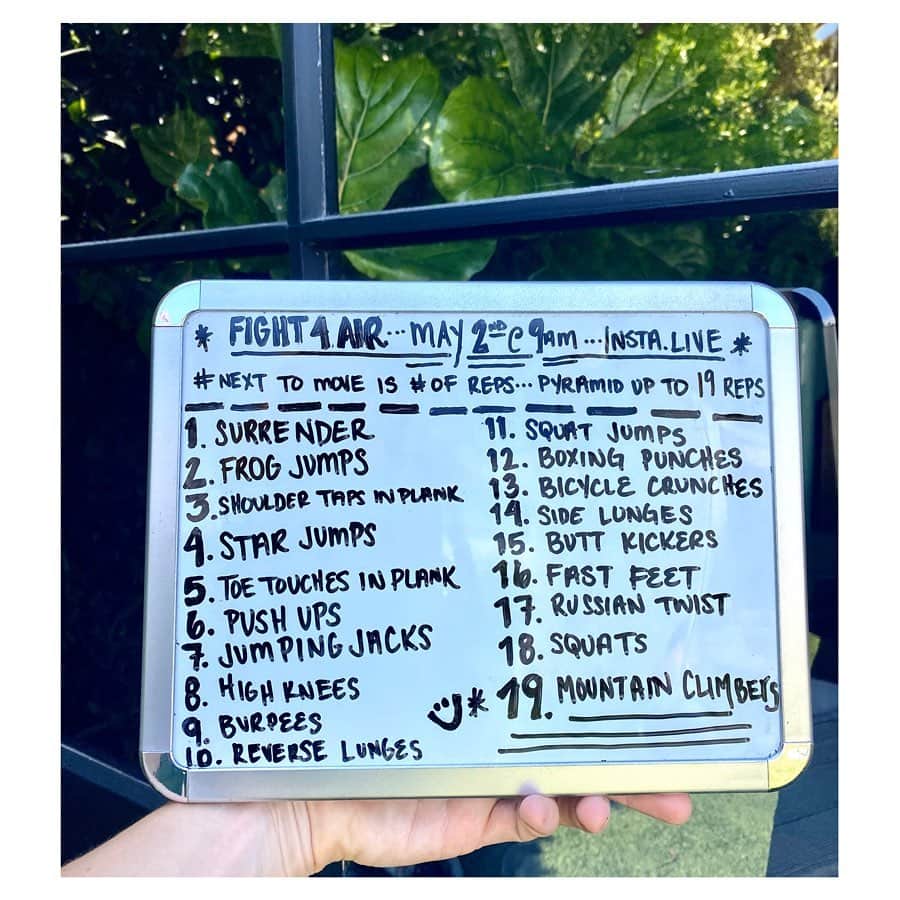 * FIGHT 4 AIR... MAY 2ND @ 9AM ... INSTA.LIVE *
# NEXT TO MOVE IS # OF REPS... PYRAMID UP TO 19 REPS
1. SURRENDER
2. FROG JUMPS
3. SHOULDER TAPS IN PLANK
4. STAR JUMPS
5. TOE TOUCHES IN PLANK
6. PUSH UPS
7. JUMPING JACKS
8. HIGH KNEES
9. BURPEES
10. REVERSE LUNGES
11. SQUAT JUMPS
12. BOXING PUNCHES
13. BICYCLE CRUNCHES
14. SIDE LUNGES
15. BUTT KICKERS
16. FAST FEET
17. RUSSIAN TWIST
18. SQUATS
* 19. MOUNTAIN CLIMBERS